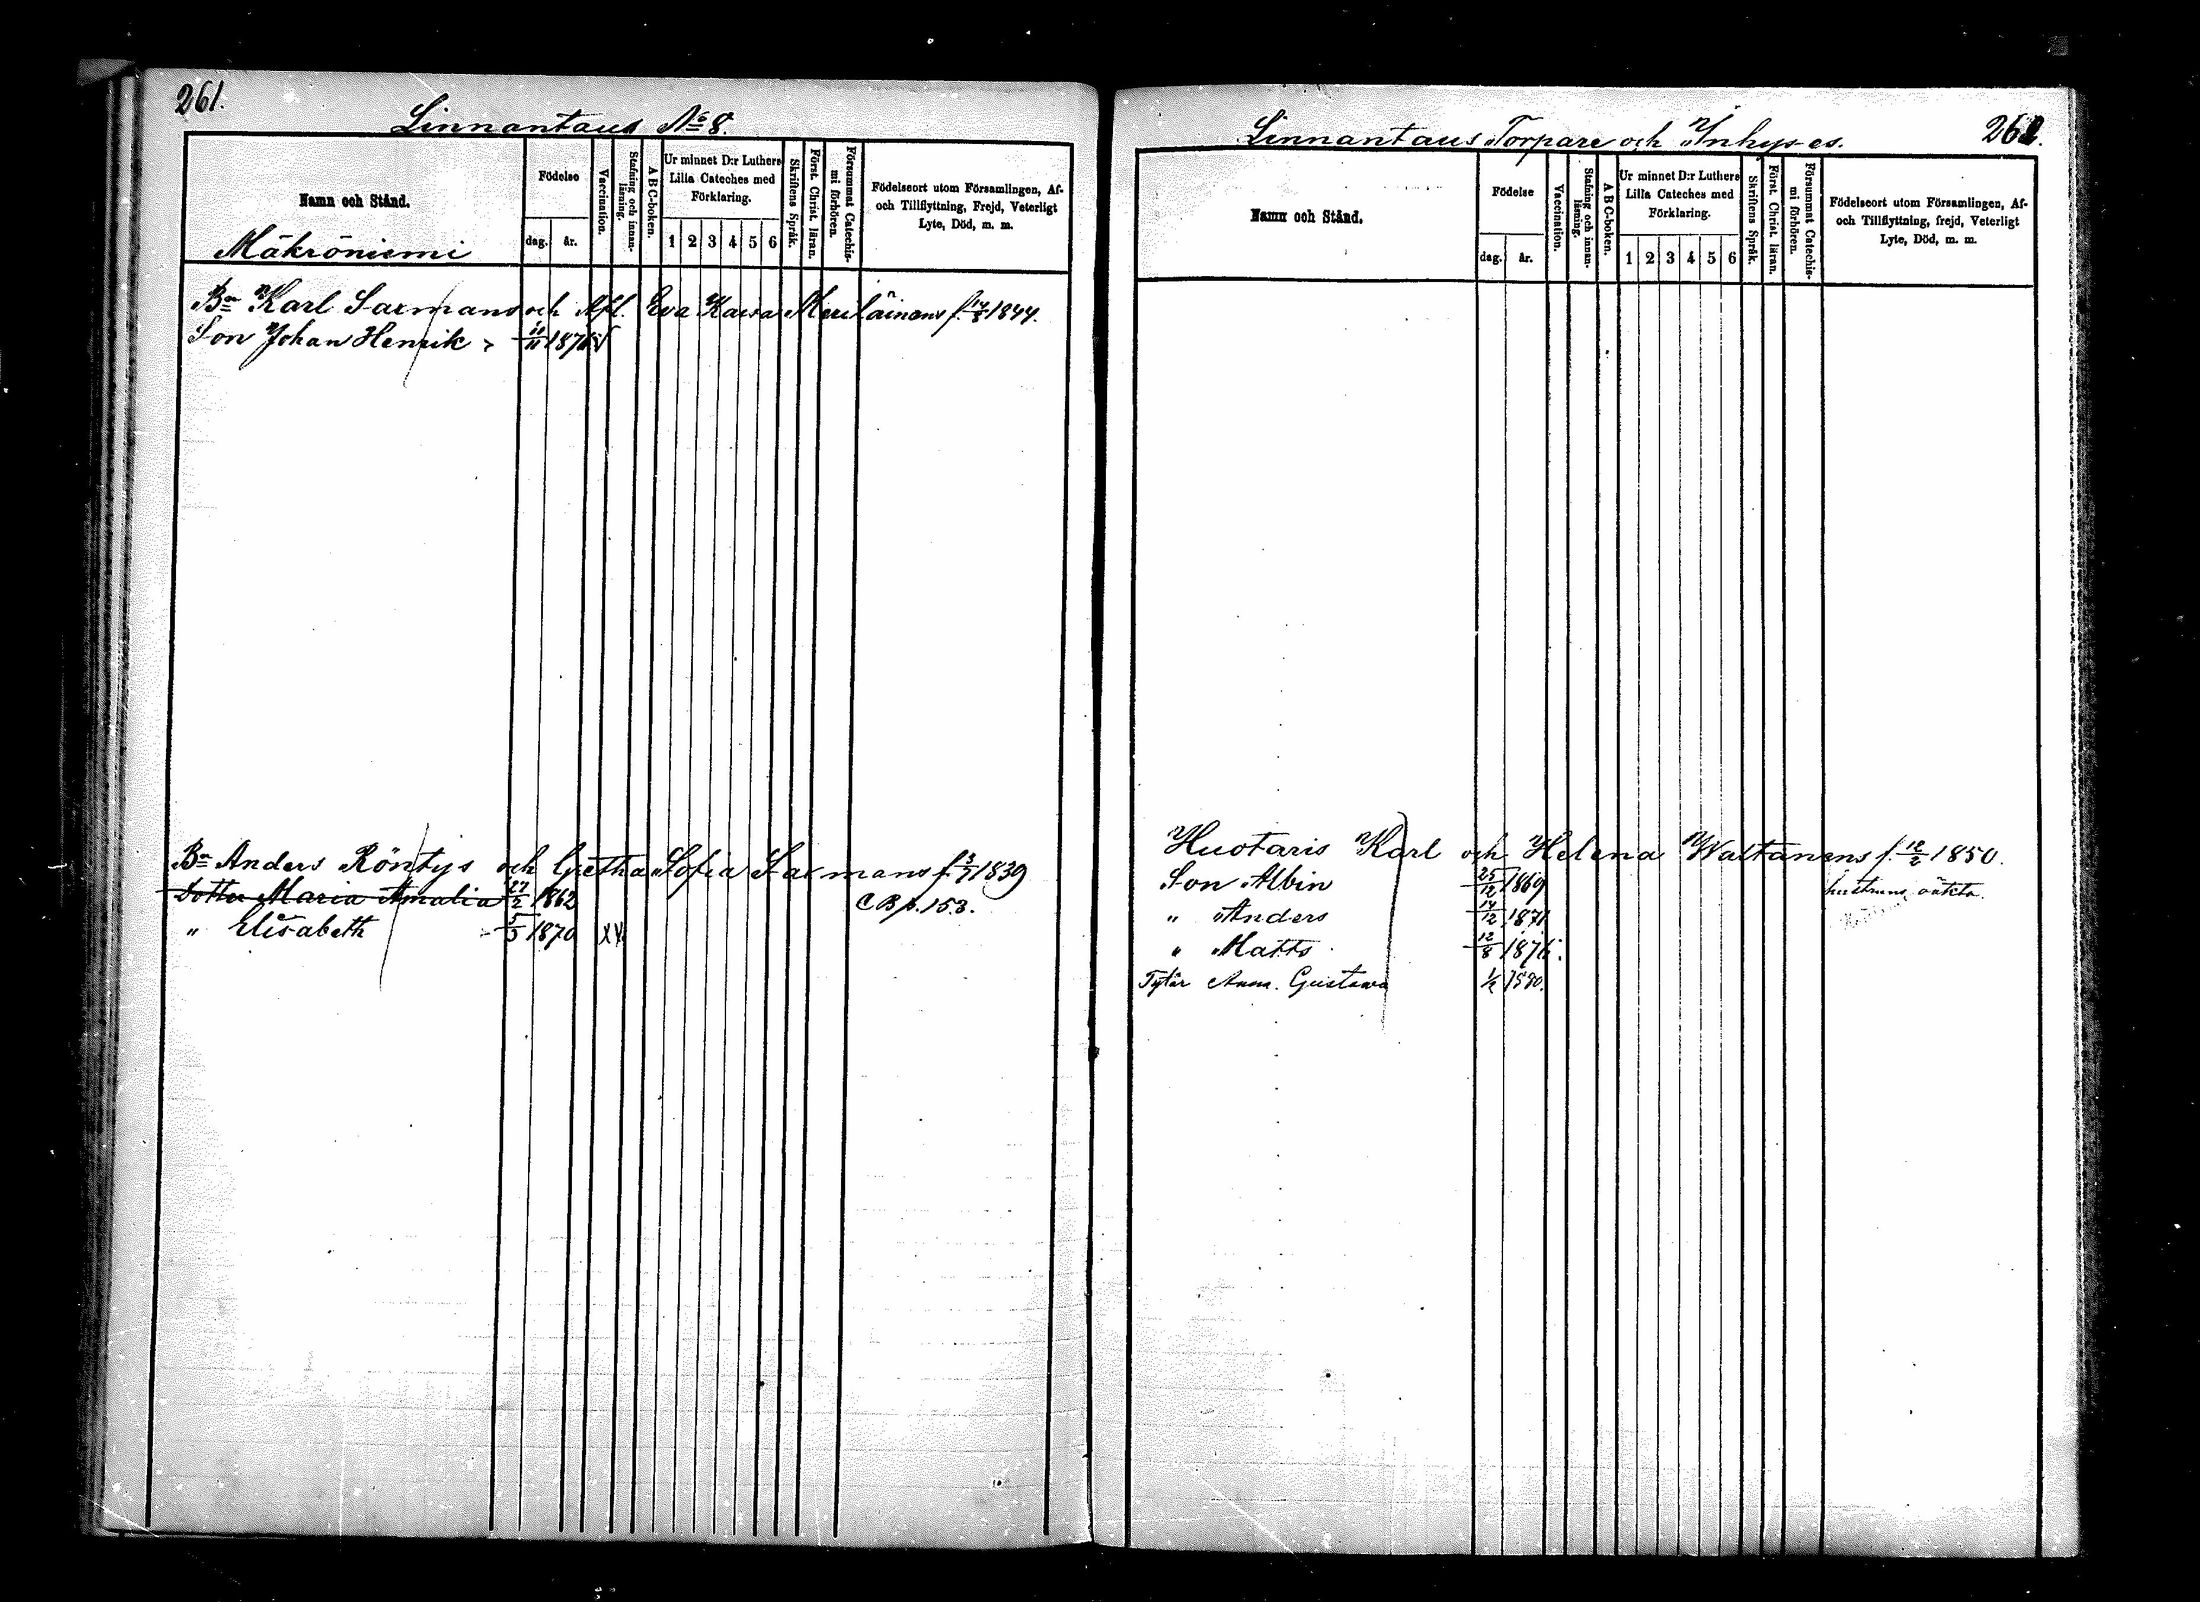 261.
Linnantaus No 8.
Namn och Stånd.
Mäkröniemi
Födelse
dag. år.
Vaccination.
Stafning och innan-läsning.
ABC-boken.
Ur minnet D:r Luthers
Lilla Cateches med
Förklaring.
1 2 3 4 5 6
Skriftens Språk.
Först. Christ. läran.
Försummat Catechis-
mi förhören.
Födelseort utom Församlingen, Af-
och Tillflyttning, Frejd, Veterligt
Lyte, Död, m. m.
Bn Karl Sarmans och Afl. Eva Kaisa Meriläinens f. 1844.
Son Johan Henrik
Bn Anders Röntys och Gretha Sofia Sarmans f. 3/7 1839
Dotter Maria Amalia 27/5 1862 C B p. 153.
" Elisabeth 5/5 1870 XX
Linnantaus Torpare och Inhyses.
Namn och Stånd.
Födelse
dag. år.
Vaccination.
Stafning och innan-
läsning.
ABC-boken.
Ur minnet D:r Luthers
Lilla Cateches med
Förklaring.
1 2 3 4 5 6
Skriftens Språk.
Först. Christ. läran.
Försummat Catechis-
mi förhören.
Födelseort utom Församlingen, Af-
och Tillflyttning, frejd, Veterligt
Lyte, Död, m. m.
Huotaris Karl och Helena Waltanens f. 12/2 1850.
Son Albin 25/12 1869
" Anders 14/12 1871
" Matts 12/8 1876.
Tytär Anna Gustava